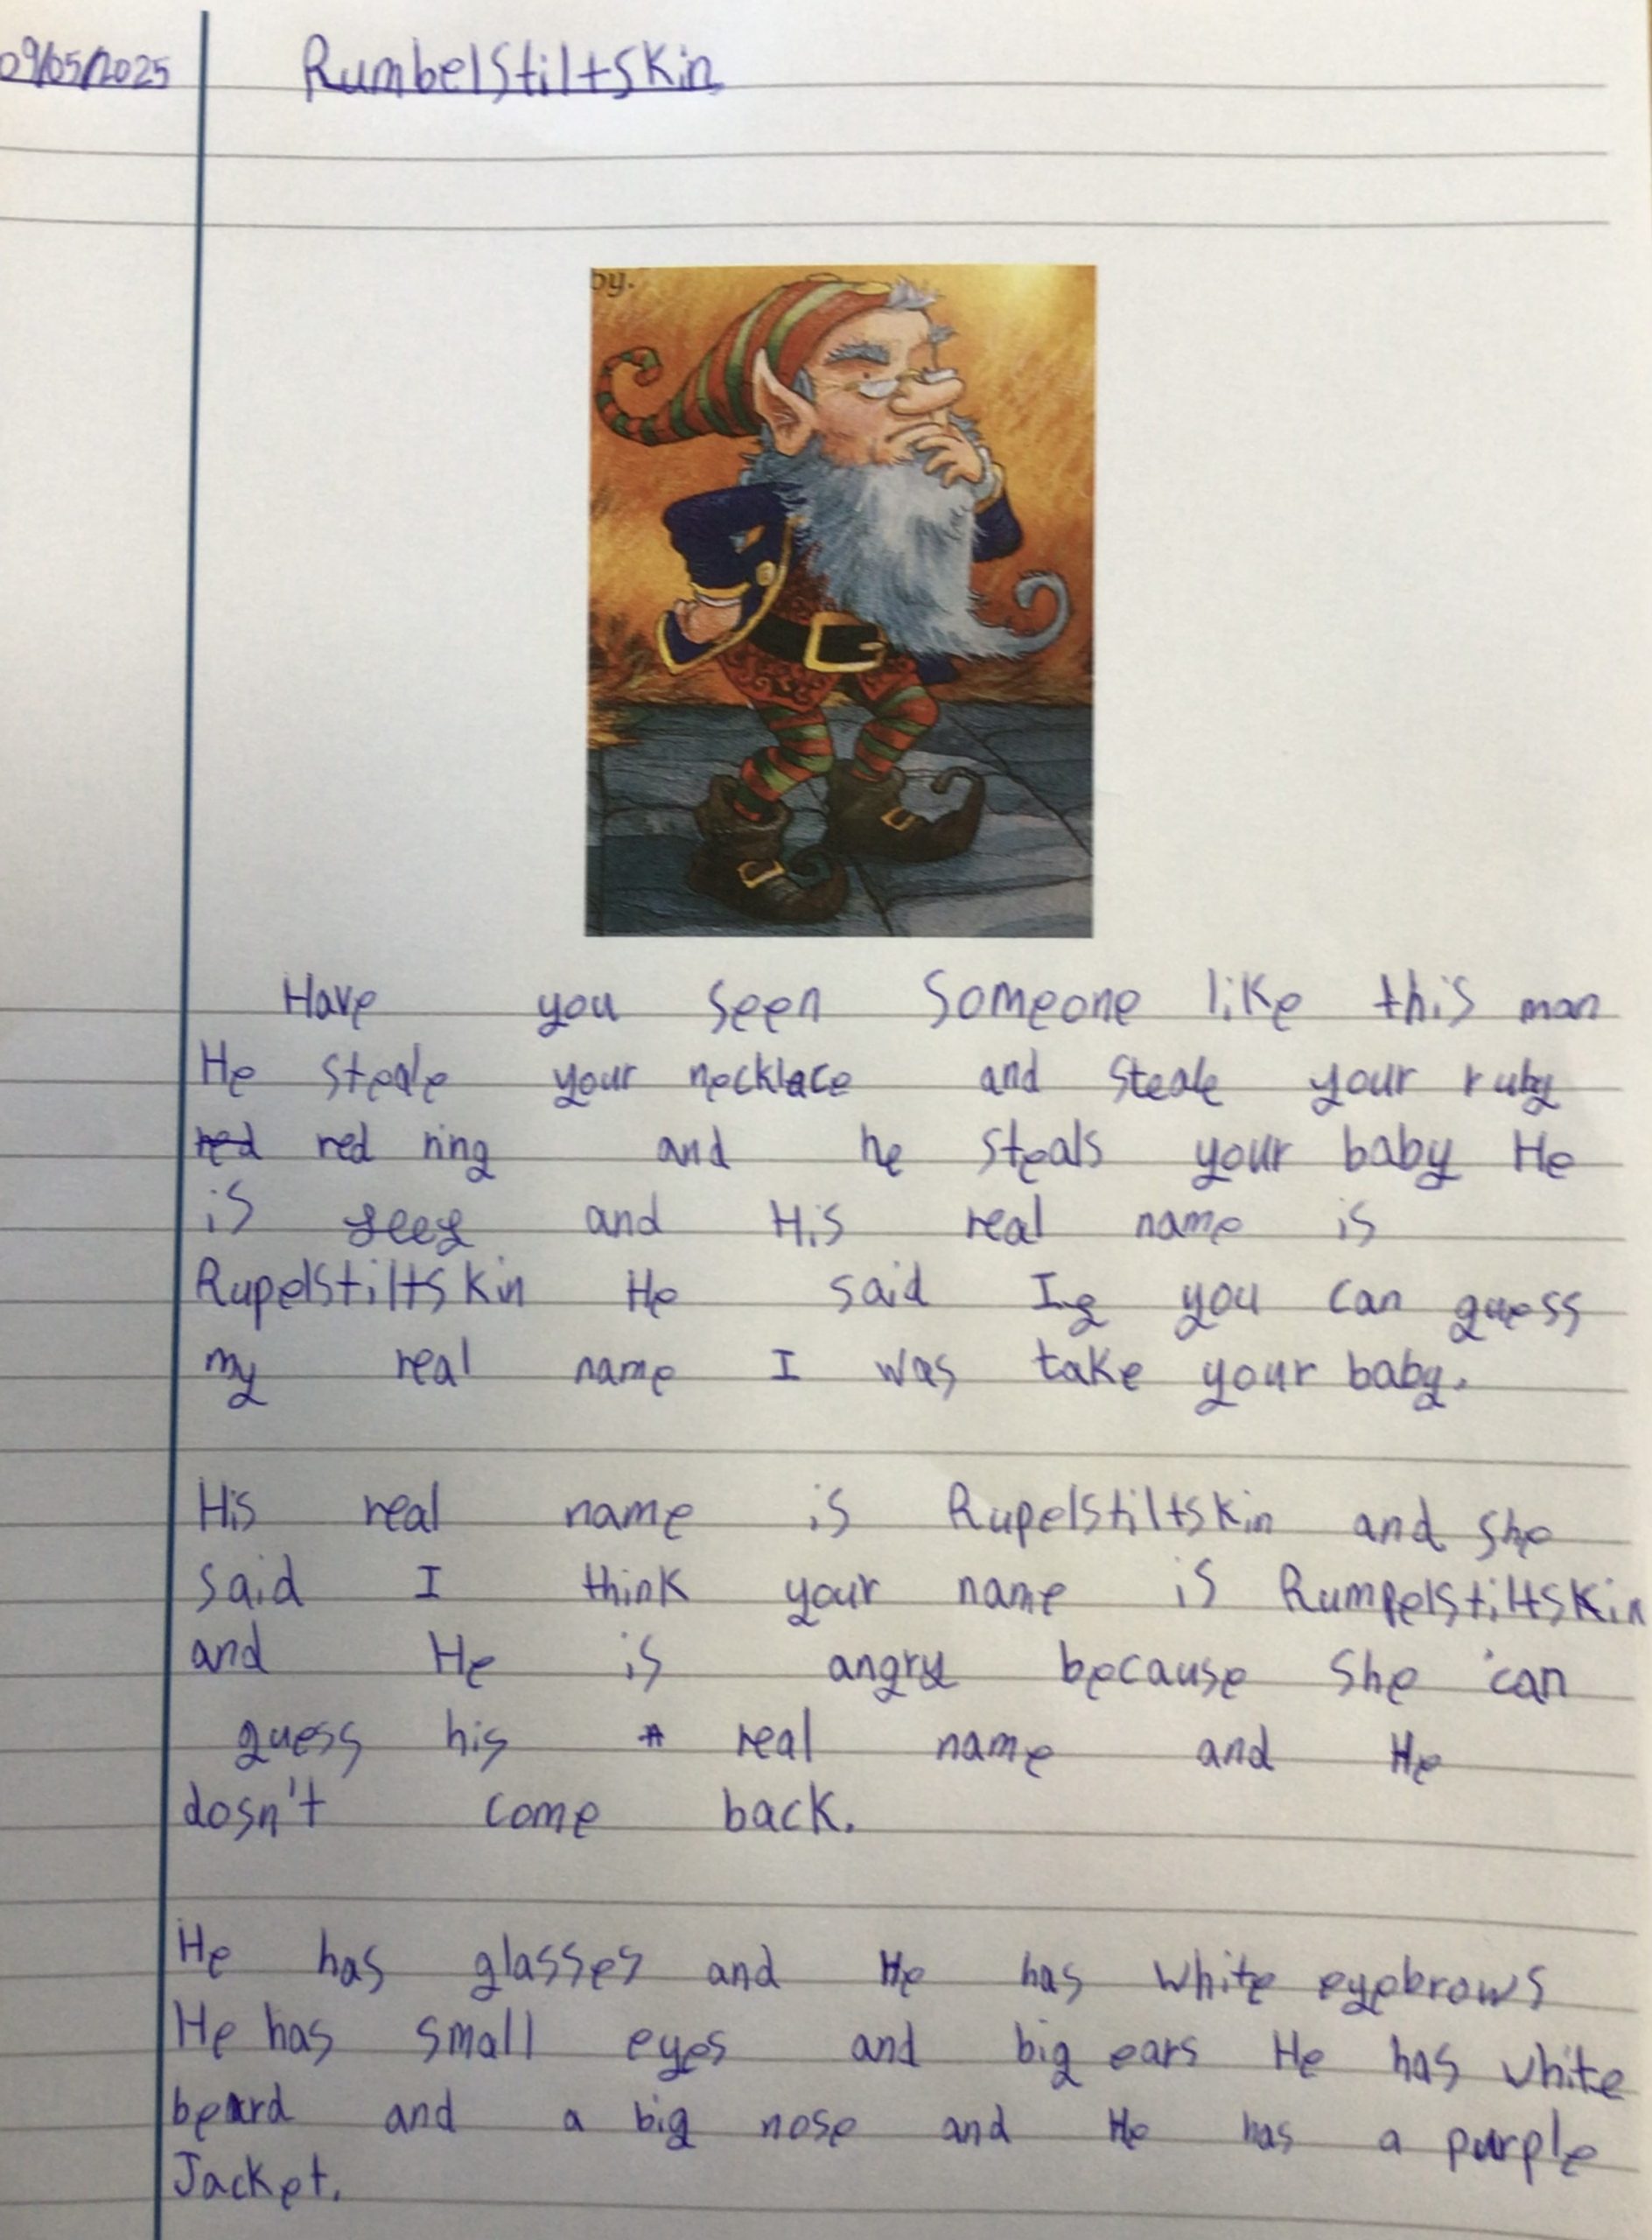 09/05/2025
Rumbelstiltskin
by.
Have you seen someone like this man
He steale your necklace and steale your ruby
red red ring and he steals your baby He
is and His real name is
Rupelstiltskin He said you can guess
my real name I was take your baby.
His real name is Rupelstiltskin and she
said I think your name is Rumpelstiltskin
and He is angry because she can
guess his real name and He
dosn't come back.
He has glasses and He has white eyebrows
He has small eyes and big ears He has white
beard and a big nose and He has a purple
Jacket.